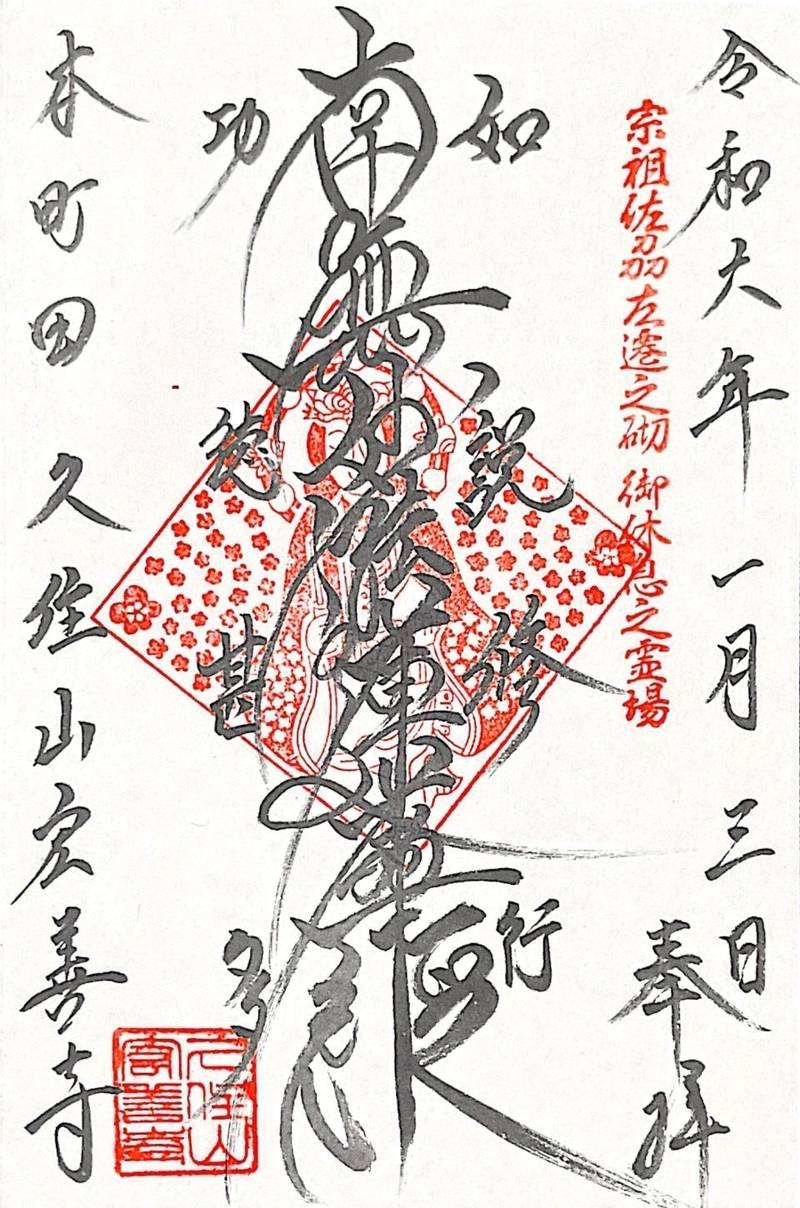 令和六年 一月 三日
奉拝
宗祖佐刕左遷之砌 御休息之霊場
如説修行
南無妙法蓮華経
功徳甚多
本町田 久住山宏善寺
久住山
宏善寺